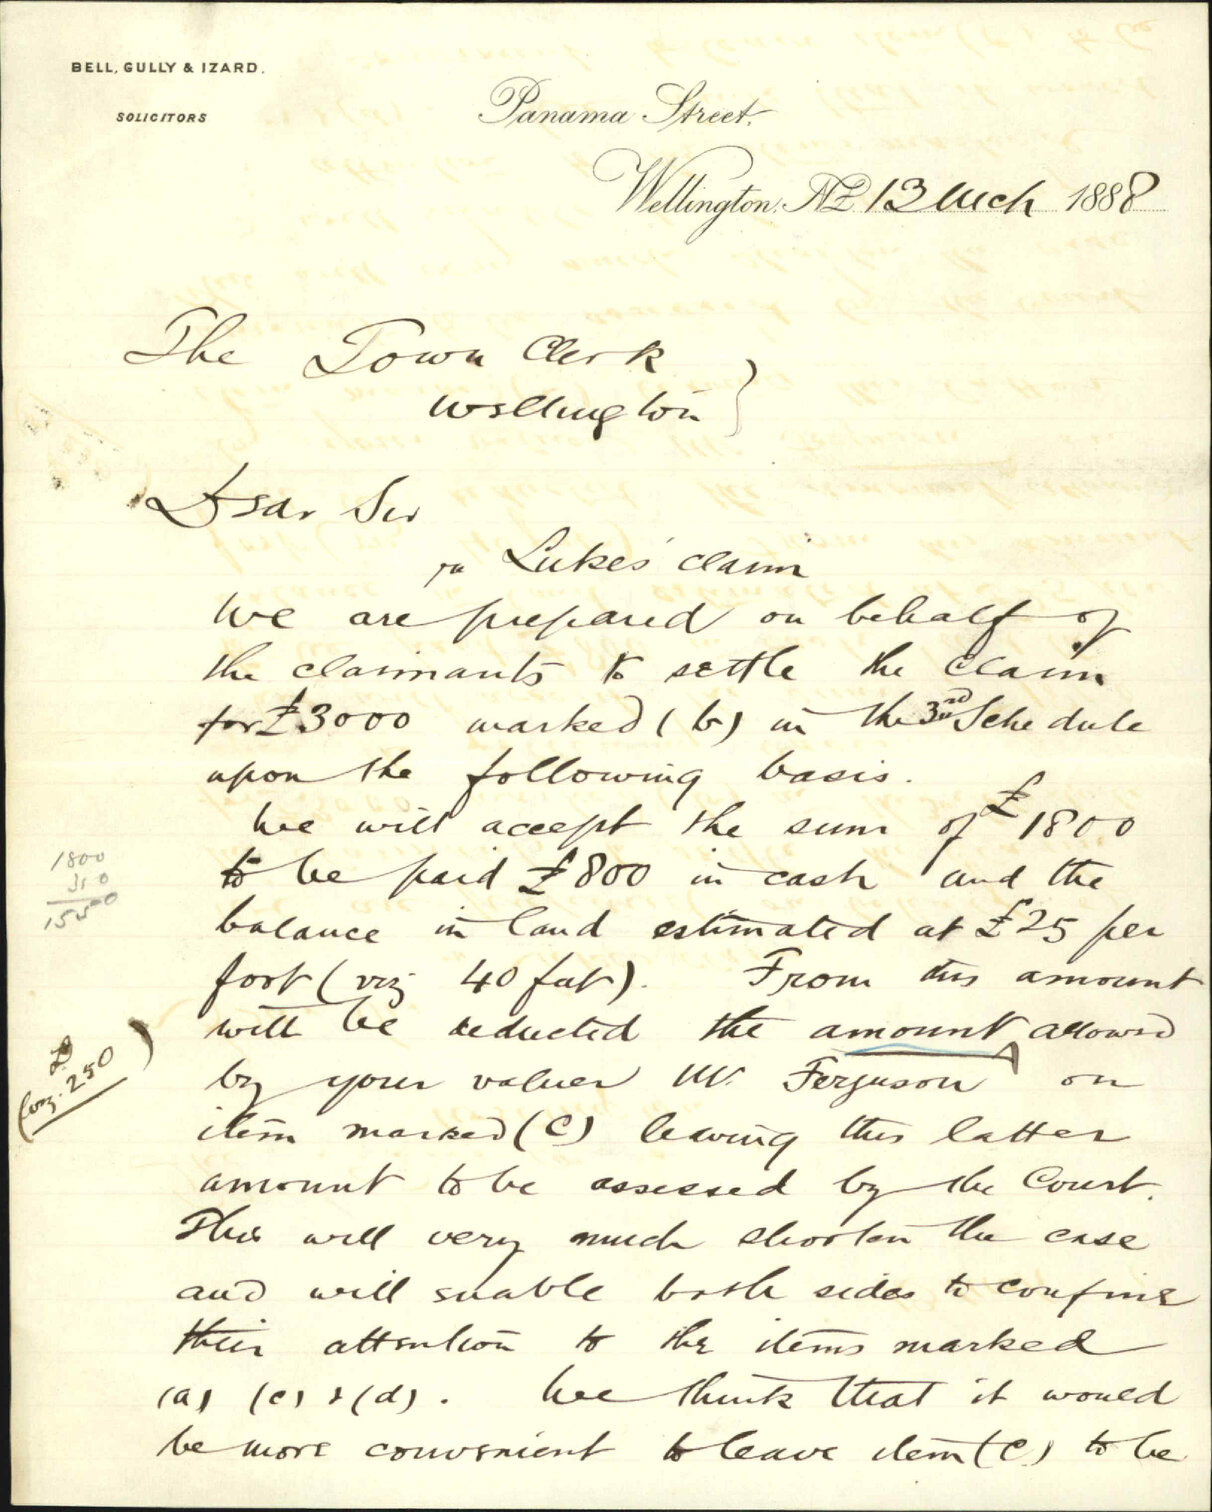 BELL, GULLY & IZARD.
SOLICITORS
Panama Street.
Wellington, NZ 13 Mch 1888
The Town Clerk
Wellington
Dear Sir
re Lukes' claim
We are prepared on behalf of
the claimants to settle the claim
for £3000 marked (b) in the 3rd Schedule
upon the following basis.
We will accept the sum of £1800
to be paid £800 in cash and the
balance in land estimated at £25 per
foot (viz 40 feet). From this amount
will be deducted the amount allowed
by your valuer Mr. Ferguson on
item marked (C) leaving this latter
amount to be assessed by the Court.
This will very much shorten the case
and will enable both sides to confine
their attention to the items marked
(a) (c) & (d). We think that it would
be more convenient to leave item (C) to be
1800
1550
(viz. £250)